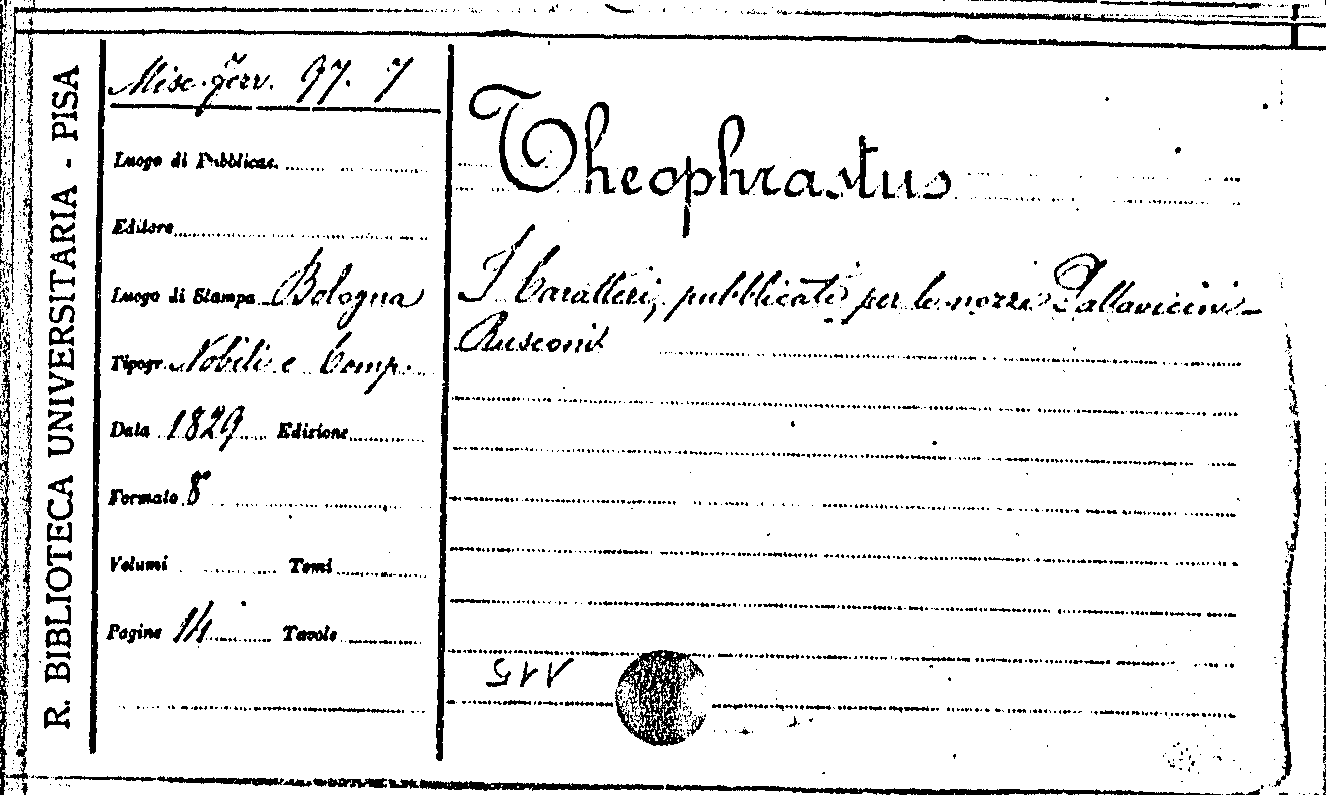 R. BIBLIOTECA UNIVERSITARIA - PISA
Misc. Ferr. 97. 7
Luogo di Pubblicaz.
Editore
Luogo di Stampa Bologna
Tipogr. Nobili e Comp.
Data 1829 Edizione
Formato 8°
Volumi Tomi
Pagine 14 Tavole
Theophrastus
I Caratteri, pubblicati per le nozze Pallavicini-
Rusconi
115